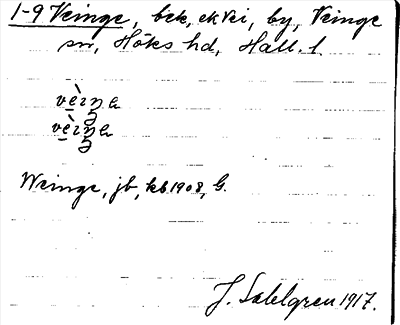 1-9 Veinge, bek, ekVei, by, Veinge
sn, Höks hd, Hall. l.
Weinge, jb, kb 1908, G.
J. Sahlgren 1917.